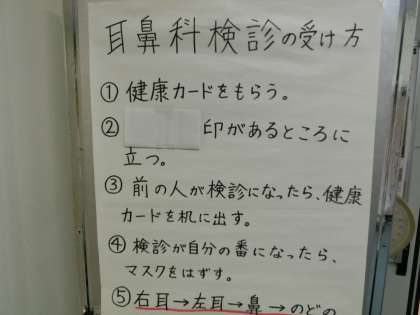 耳鼻科検診の受け方
① 健康カードをもらう。
② 印があるところに
立つ。
③ 前の人が検診になったら、健康
カードを机に出す。
④ 検診が自分の番になったら、
マスクをはずす。
⑤ 右耳→左耳→鼻→のどの